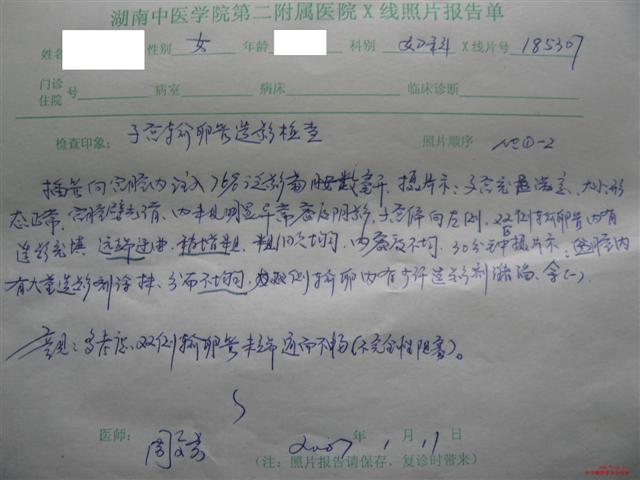 湖南中医学院第二附属医院X线照片报告单
姓名 性别 女 年龄 科别 妇科 X线片号 185307
门诊
住院 号 病室 病床 临床诊断
检查印象: 子宫输卵管造影检查 照片顺序
插管向宫腔内注入76%泛影葡胺数毫升,摄片示:子宫充盈 大小形
态正常,宫腔壁光滑,内未见明显异常密度阴影,子宫偏向左侧,双侧输卵管内有
造影充填, 粗细不均匀,内密度不均,30分钟摄片示:盆腔内
有大量造影剂涂抹,分布不均匀,双侧输卵管内有少许造影剂
意见:多考虑双侧输卵管 通而不畅(不完全性阻塞)。
医师: 周 2007年1月11日
(注:照片报告请保存,复诊时带来)